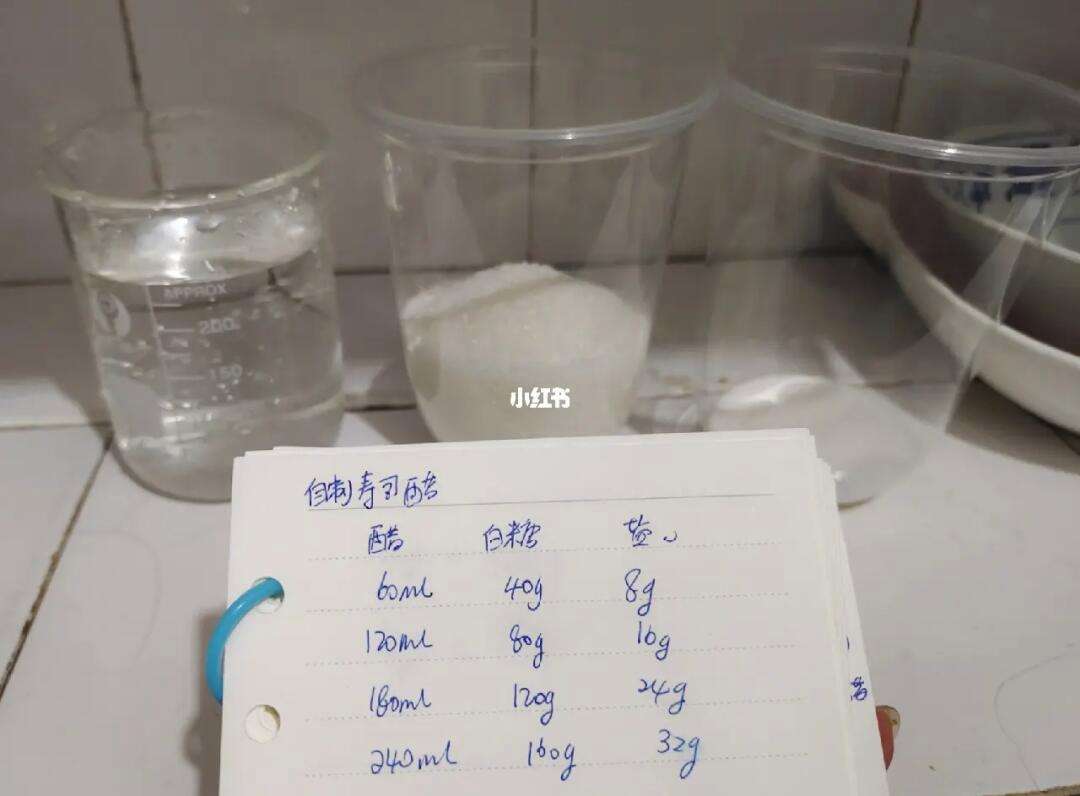 APPROX
200
150
小红书
自制寿司醋
醋 白糖 盐
60ml 40g 8g
120ml 80g 16g
180ml 120g 24g
240ml 160g 32g